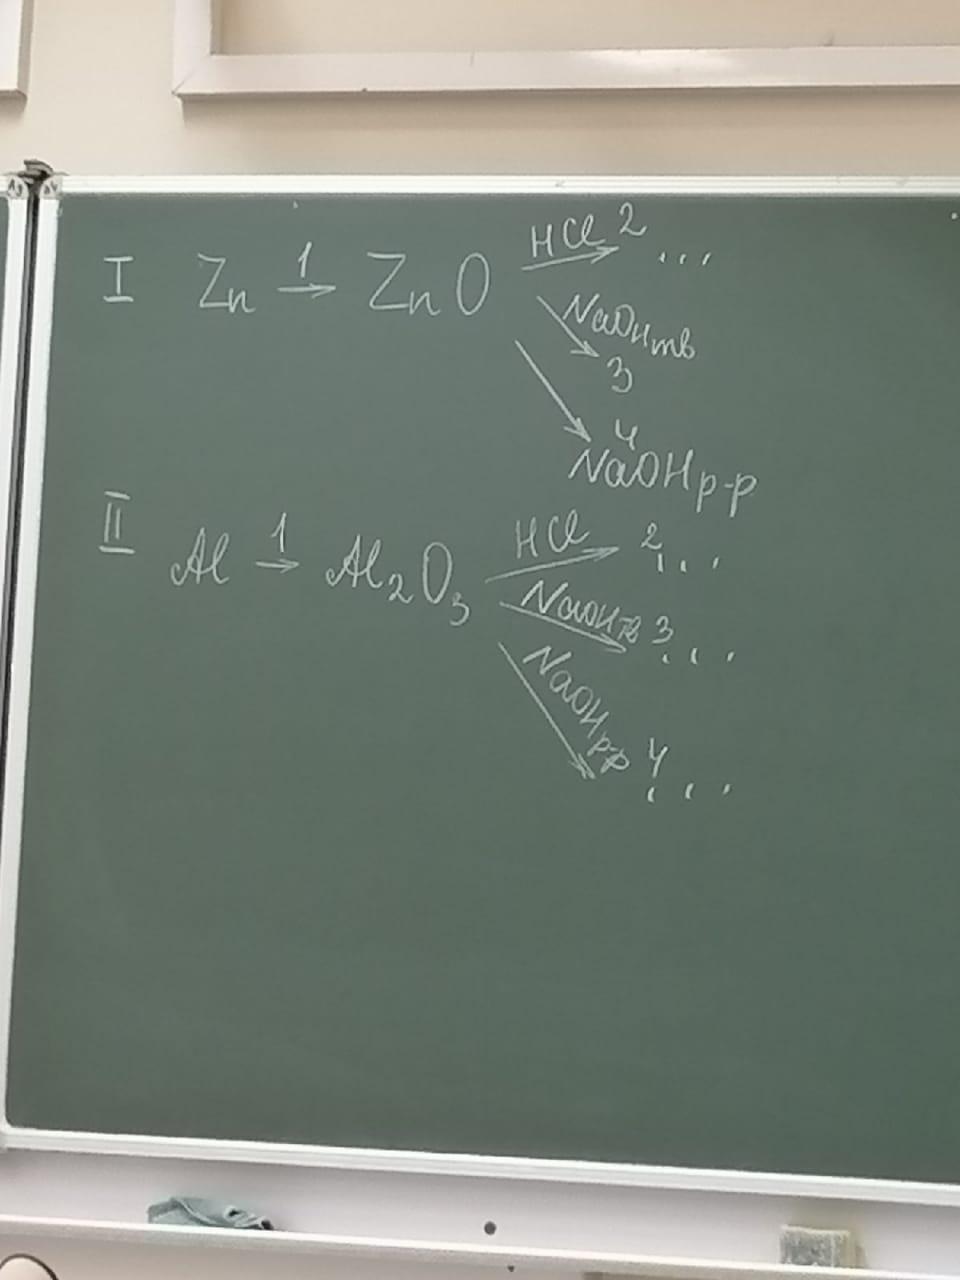 I Zn 1→ ZnO HCl 2→ ...
NaOH тв 3
4 NaOH р-р
II Al 1→ Al₂O₃ HCl→ 2 ...
NaOH тв 3 ...
NaOH р-р 4 ...